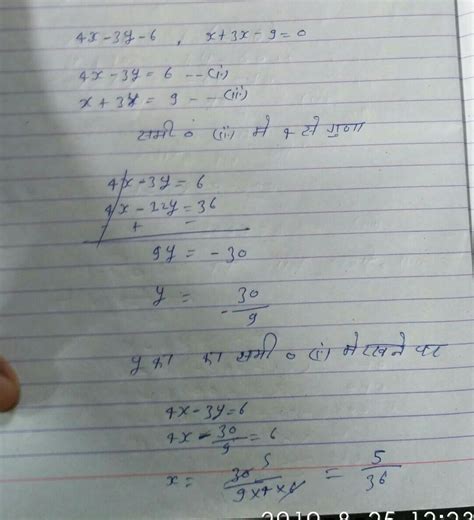 4x-3y-6 , x+3x-9=0
4x-3y = 6 --(i)
x+3y = 9 --(ii)
समी० (ii) मे 4 से गुणा
4x-3y = 6
4x-22y = 36
- + -
9y = -30
y = -30/9
y का का समी० (i) मे रखने पर
4x-3y=6
4x-30/9=6
x = 5/36